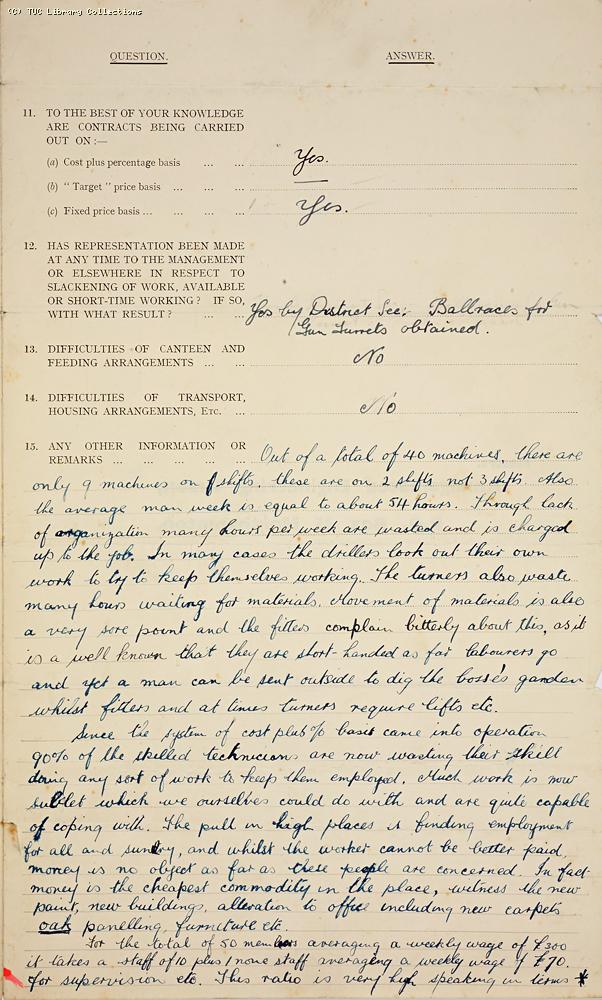 (C) TUC Library Collections
QUESTION. ANSWER.
11. TO THE BEST OF YOUR KNOWLEDGE
ARE CONTRACTS BEING CARRIED
OUT ON :—
(a) Cost plus percentage basis ... ... Yes.
(b) "Target" price basis ... ... ... —
(c) Fixed price basis ... ... ... ... Yes.
12. HAS REPRESENTATION BEEN MADE
AT ANY TIME TO THE MANAGEMENT
OR ELSEWHERE IN RESPECT TO
SLACKENING OF WORK, AVAILABLE
OR SHORT-TIME WORKING? IF SO,
WITH WHAT RESULT? ... ... ... Yes by District Sec: Ballraces for
Gun Turrets obtained.
13. DIFFICULTIES OF CANTEEN AND
FEEDING ARRANGEMENTS ... ... No
14. DIFFICULTIES OF TRANSPORT,
HOUSING ARRANGEMENTS, ETC. ... No
15. ANY OTHER INFORMATION OR
REMARKS ... ... ... ... ... Out of a total of 40 machines, there are
only 9 machines on shifts, these are on 2 shifts not 3 shifts. Also
the average man week is equal to about 54 hours. Through lack
of organization many hours per week are wasted and is charged
up to the job. In many cases the drillers look out their own
work to try to keep themselves working. The turners also waste
many hours waiting for materials. Movement of materials is also
a very sore point and the fitters complain bitterly about this, as it
is a well known that they are short-handed as far labourers go
and yet a man can be sent outside to dig the bosse's garden
whilst fitters and at times turners require lifts etc.
Since the system of cost plus % basis came into operation
90% of the skilled technicians are now wasting their skill
doing any sort of work to keep them employed. Much work is now
sublet which we ourselves could do with and are quite capable
of coping with. The pull in high places is finding employment
for all and sundry, and whilst the worker cannot be better paid,
money is no object as far as these people are concerned. In fact
money is the cheapest commodity in the place, witness the new
paint, new buildings, alteration to office including new carpets
oak panelling, furniture etc.
For the total of 50 members averaging a weekly wage of £300
it takes a staff of 10 plus 1 none staff averaging a weekly wage of £70.
for supervision etc. This ratio is very high speaking in terms *